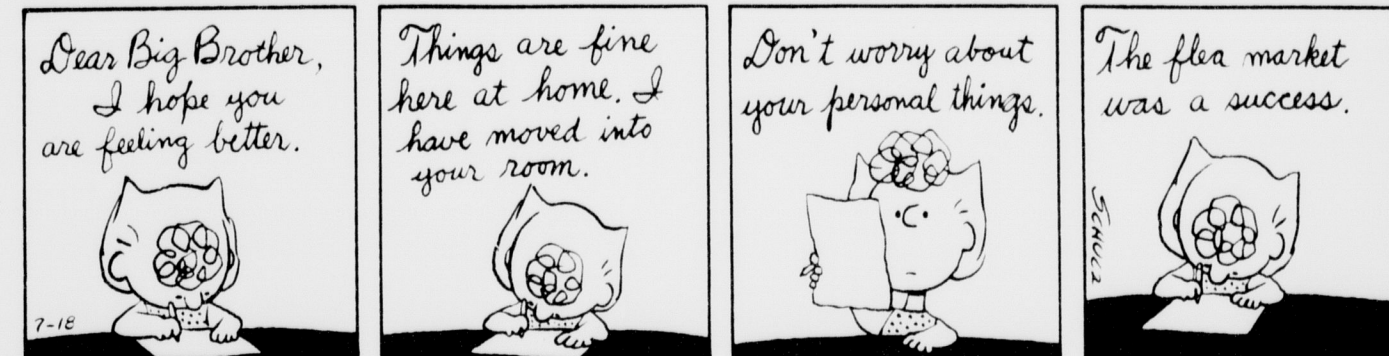 Dear Big Brother,
I hope you
are feeling better.
7-18
Things are fine
here at home. I
have moved into
your room.
Don't worry about
your personal things.
The flea market
was a success.
SCHULZ